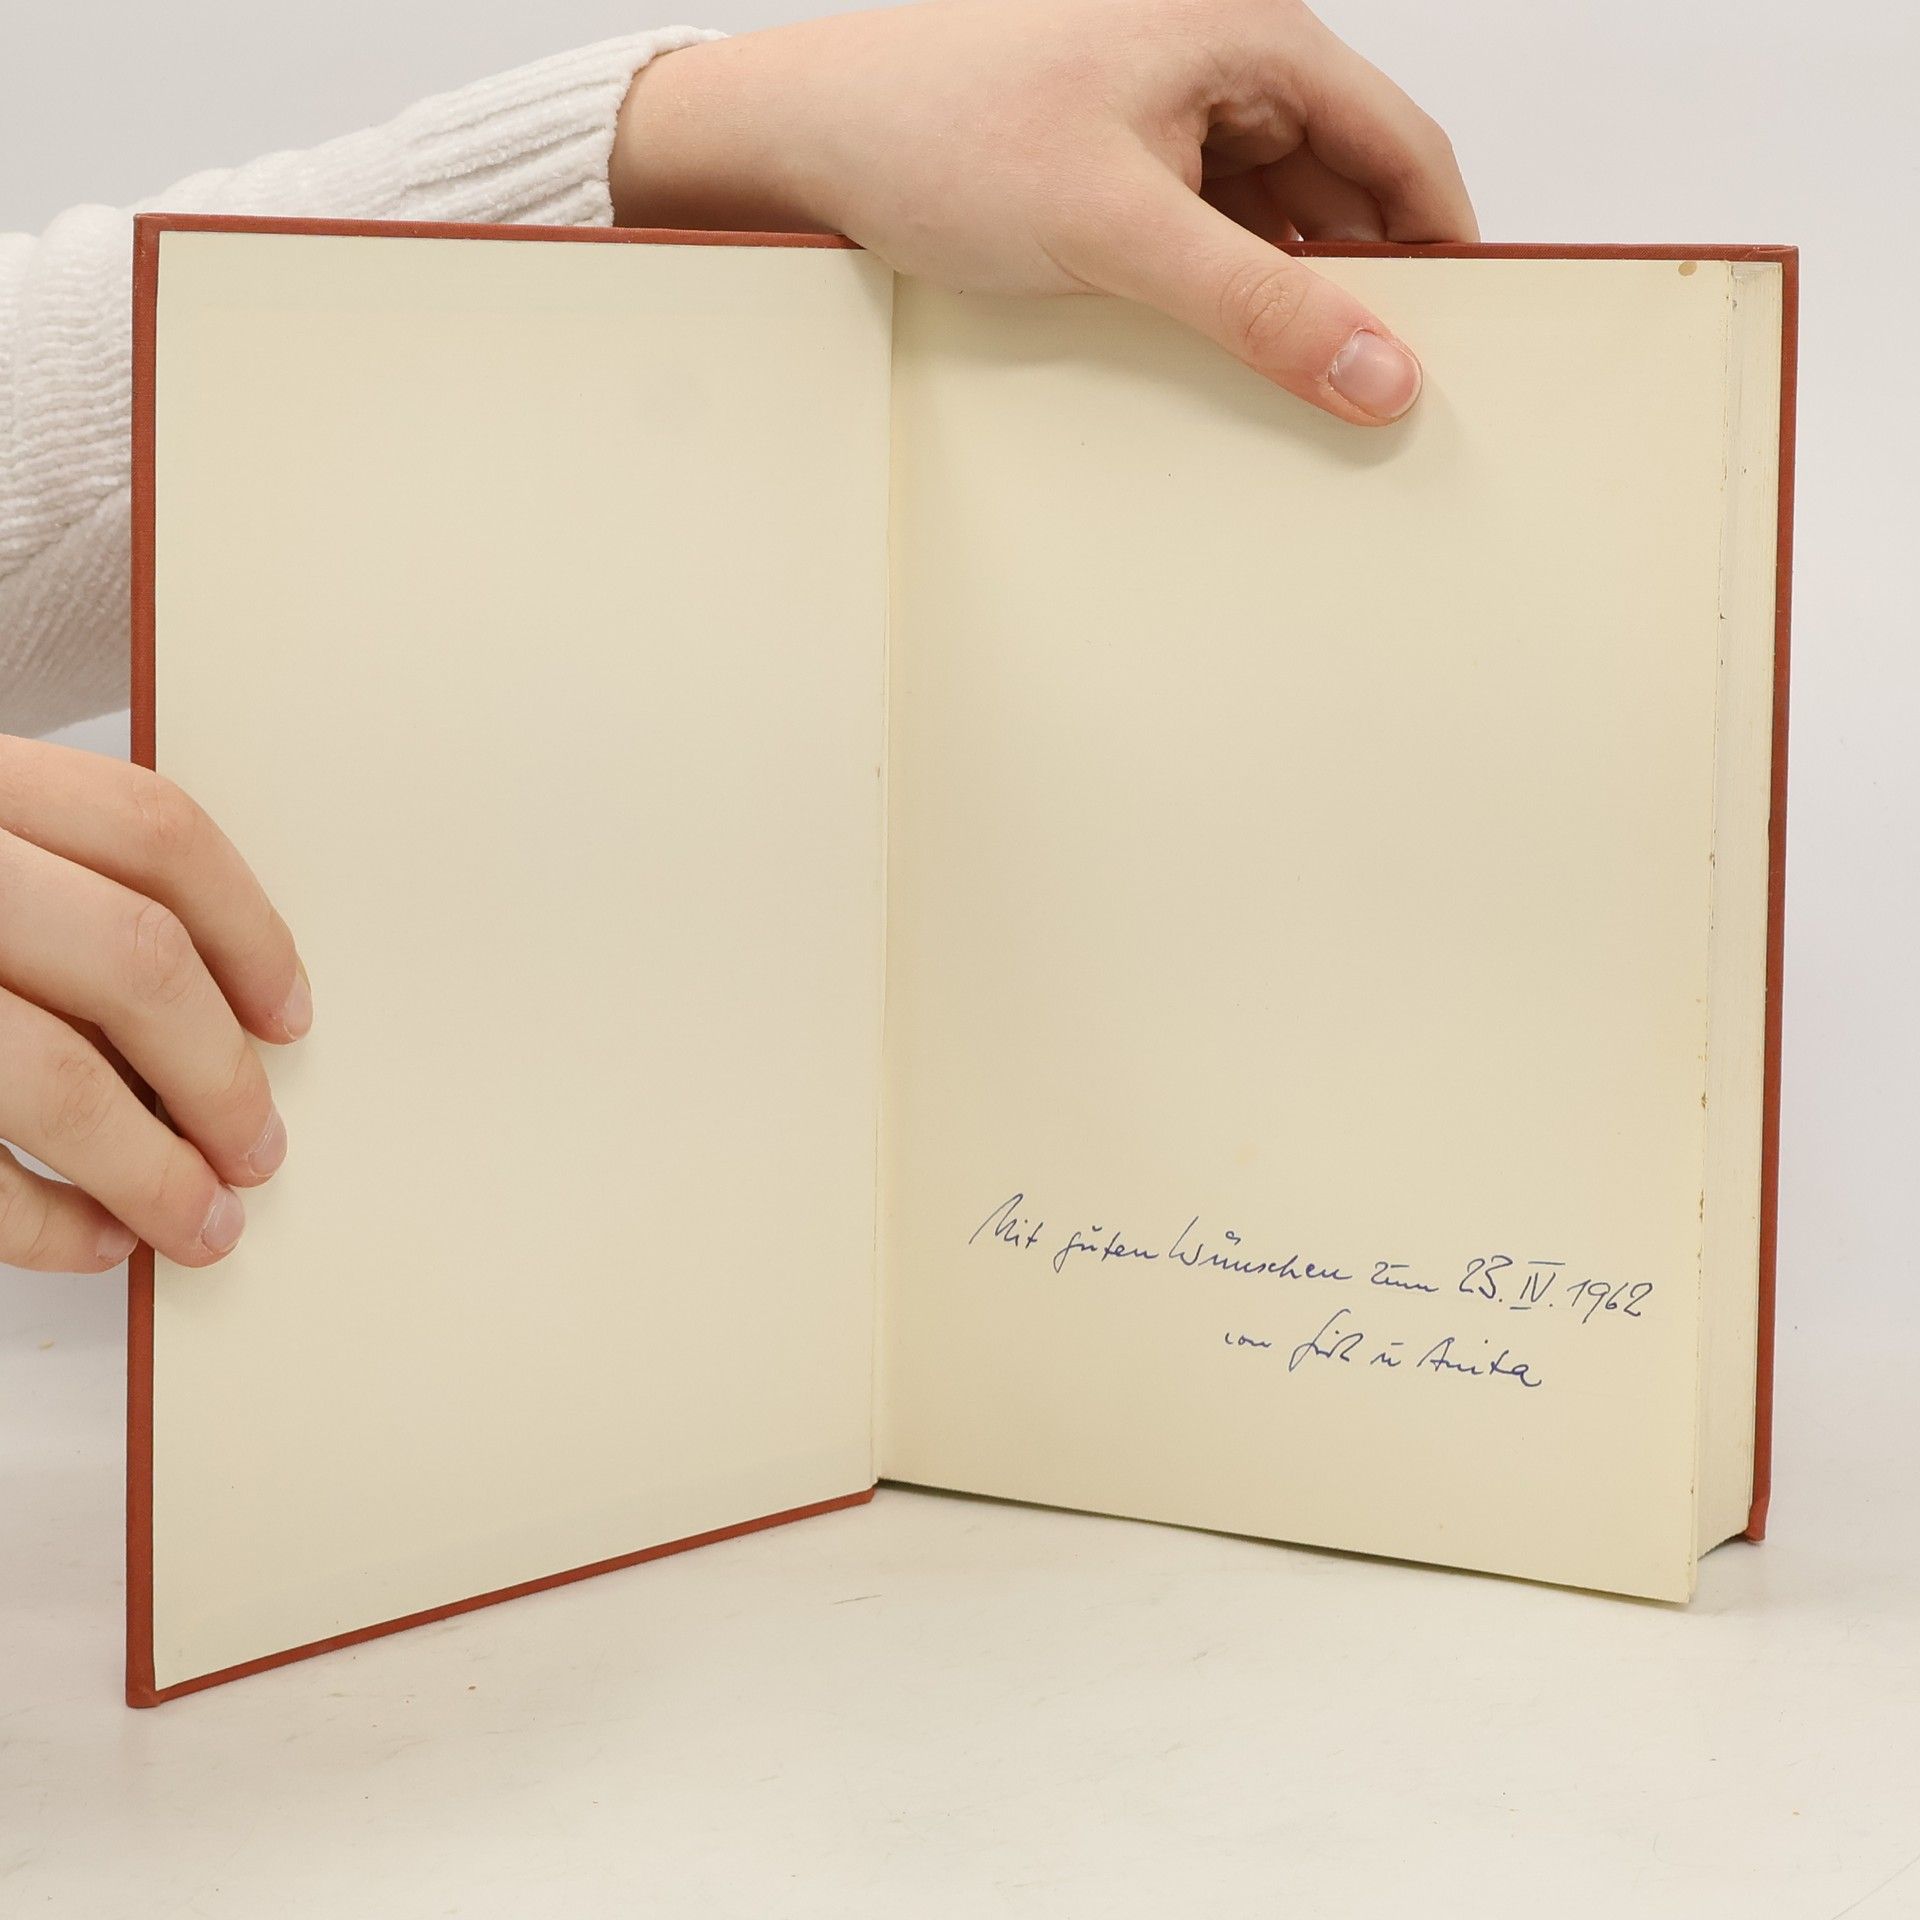 Mit guten Wünschen zum 23. IV. 1962
von u Anita